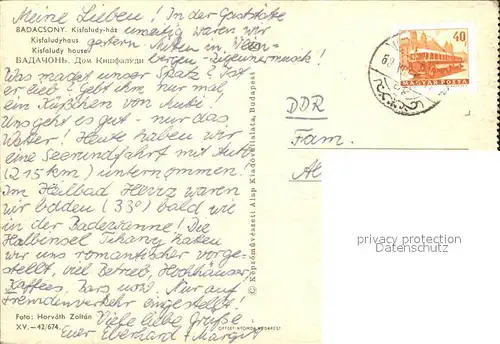 Meine Lieben! In der Gaststätte
BADACSONY. Kisfaludy-ház
Kisfaludyhaus
Kisfaludy house
БАДАЧОНЬ. Дом Кишфалуди
waren wir
gestern Mitten in
bergen - Zigeunermusik!
Was macht unser Spatz? Ist
er lieb? Gebt ihm nur mal
ein Küßchen von Mutti!
Uns geht es gut - nur das
Wetter! Heute haben wir
eine Seerundfahrt mit Auto
(215 km) unternommen!
Im Heilbad Heviz waren
wir baden (33°) bald wie
in der Badewanne! Die
Halbinsel Tihany hatten
wir uns romantischer vorge-
stellt, viel Betrieb, Hochhäuser,
Kaffees, Bars usw. Nur auf
Fremdenverkehr eingestellt!
Viele liebe Grüße
Euer Eberhard + Margit
Foto: Horváth Zoltán
XV.-42/674.
OFFSET NYOMDA BUDAPEST
© Képzőművészeti Alap Kiadóvállalata, Budapest
40
MAGYAR POSTA
DDR
Fam.
privacy protection
Datenschutz